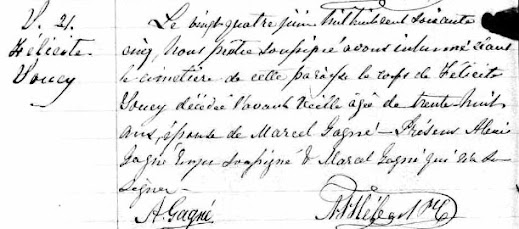 V. 21.
Félicité
Soucy
Le vingt-quatre juin mil huit cent soixante
cinq, Nous prêtre soussigné avons inhumé dans
le cimetière de cette paroisse le corps de Félicité
Soucy décédée l'avant veille âgée de trente huit
ans, épouse de Marcel Gagné – Présens Alexi
Gagné soussigné & Marcel Gagné qui n'a su
signer –
A. Gagné